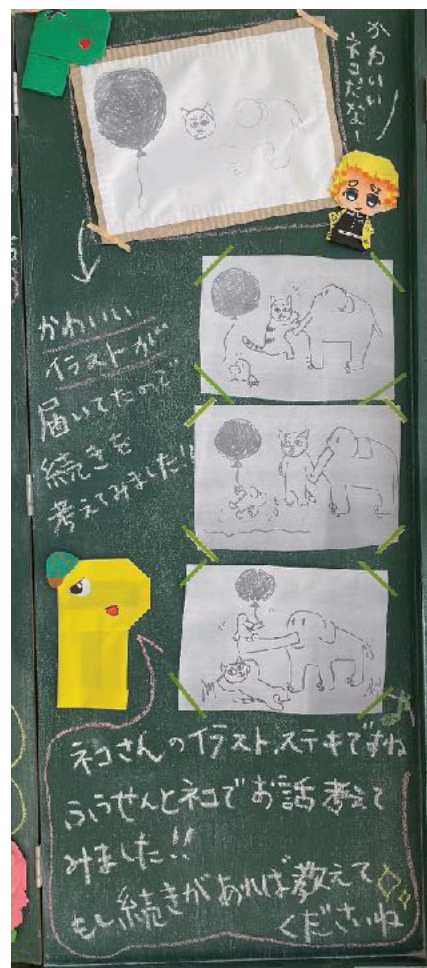 かわいい
ネコだなー
かわいい
イラストが
届いてたので
続きを
考えてみました!!
ネコさんのイラスト、ステキですね
ふうせんとネコでお話考えて
みました!!
もし続きがあれば教えて
くださいね